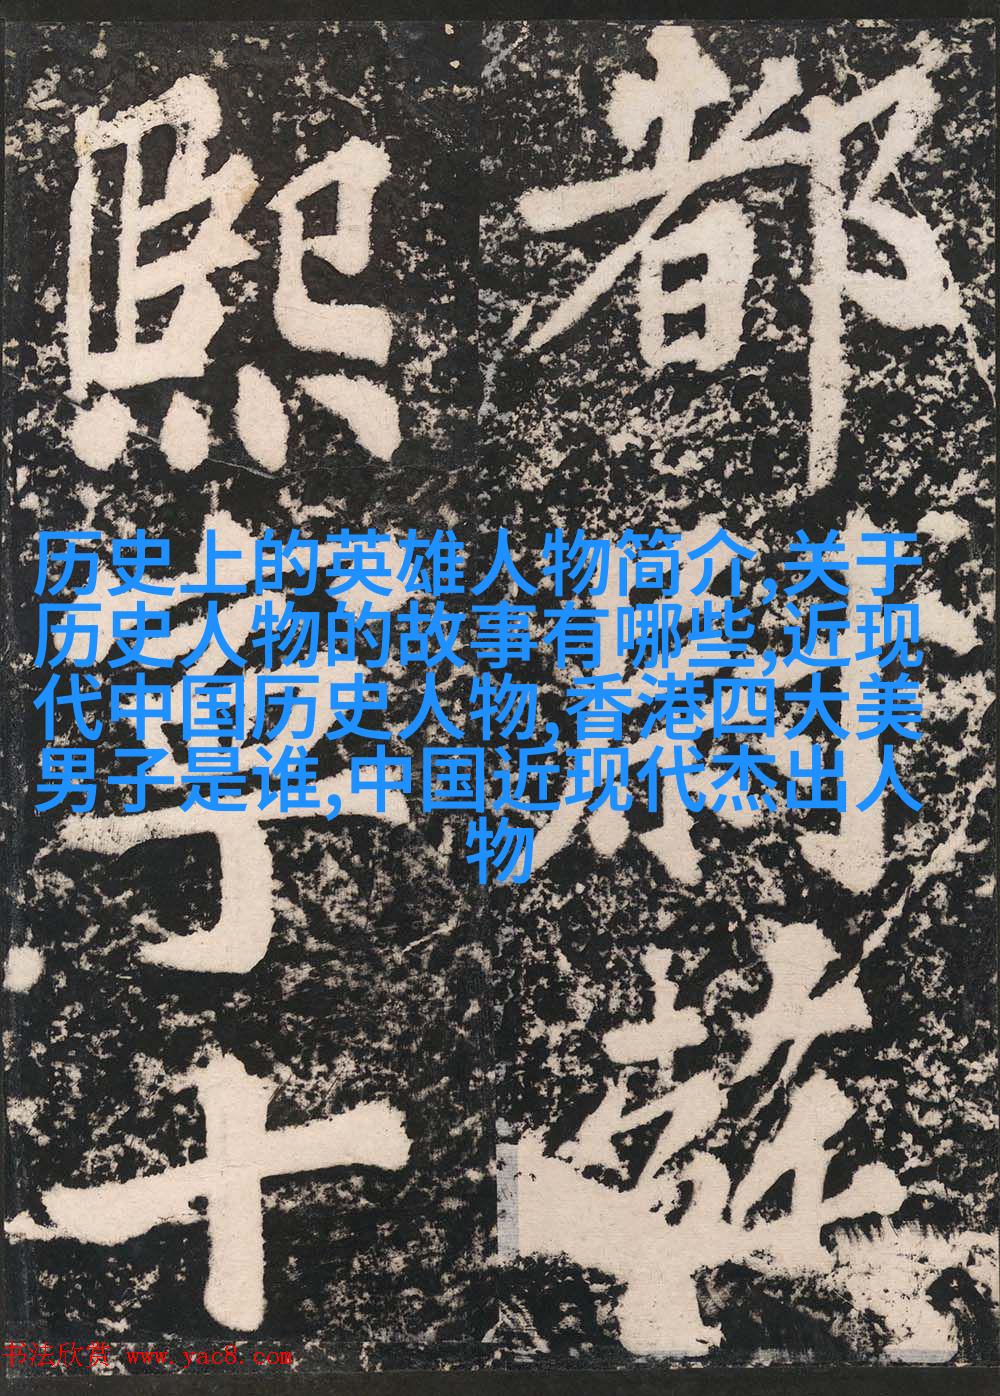 都
熙寧十
历史上的英雄人物简介,关于
历史人物的故事有哪些,近现
代中国历史人物,香港四大美
男子是谁,中国近现代杰出人
物
书法欣赏 www.yac8.com